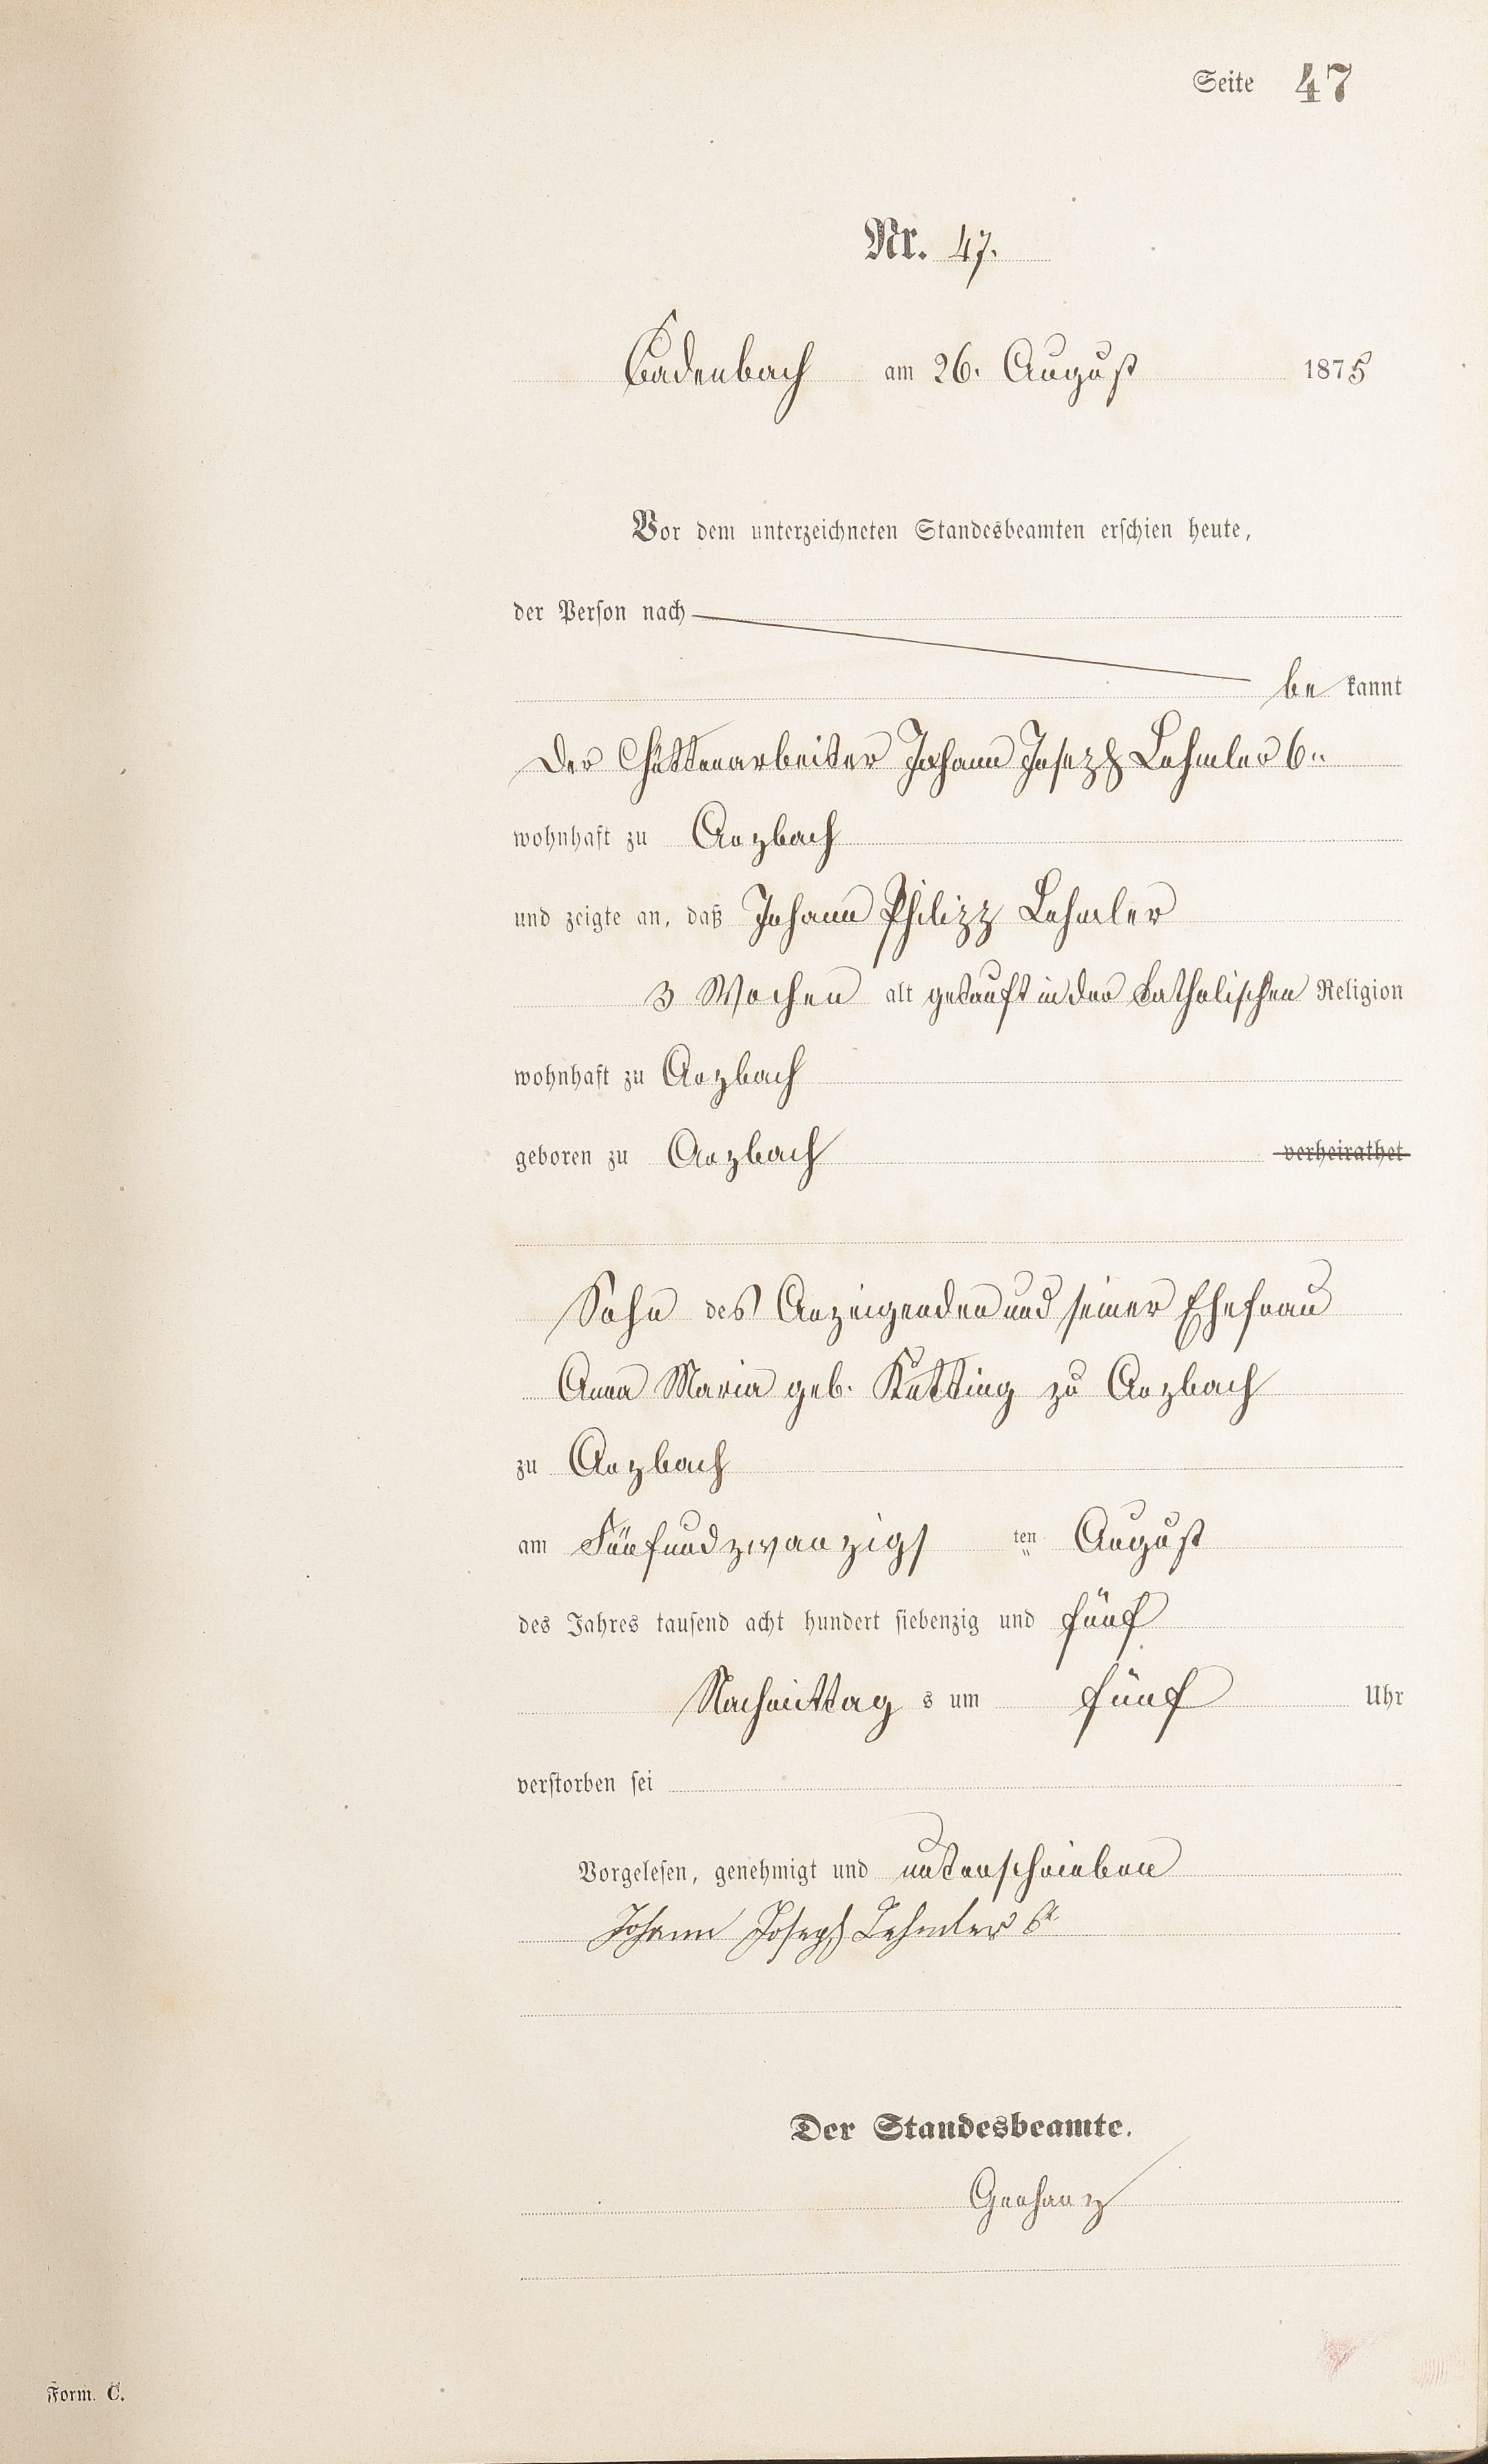 Seite 47
Nr. 47.
Cadenbach am 26. August 1875
Vor dem unterzeichneten Standesbeamten erschien heute,
der Person nach
be kannt
Der Hüttenarbeiter Johann Joseph Lehmler 6"
wohnhaft zu Arzbach
und zeigte an, daß Johann Philipp Lehmler
3 Wochen alt getauft in der katholischen Religion
wohnhaft zu Arzbach
geboren zu Arzbach verheirathet
Sohn des Anzeigenden und seiner Ehefrau
Anna Maria geb. zu Arzbach
zu Arzbach
am Fünfundzwanzigs ten August
des Jahres tausend acht hundert siebenzig und fünf
Nachmittag s um fünf Uhr
verstorben sei
Vorgelesen, genehmigt und unterschrieben
Johann Joseph Lehmler
Der Standesbeamte.
Form. C.